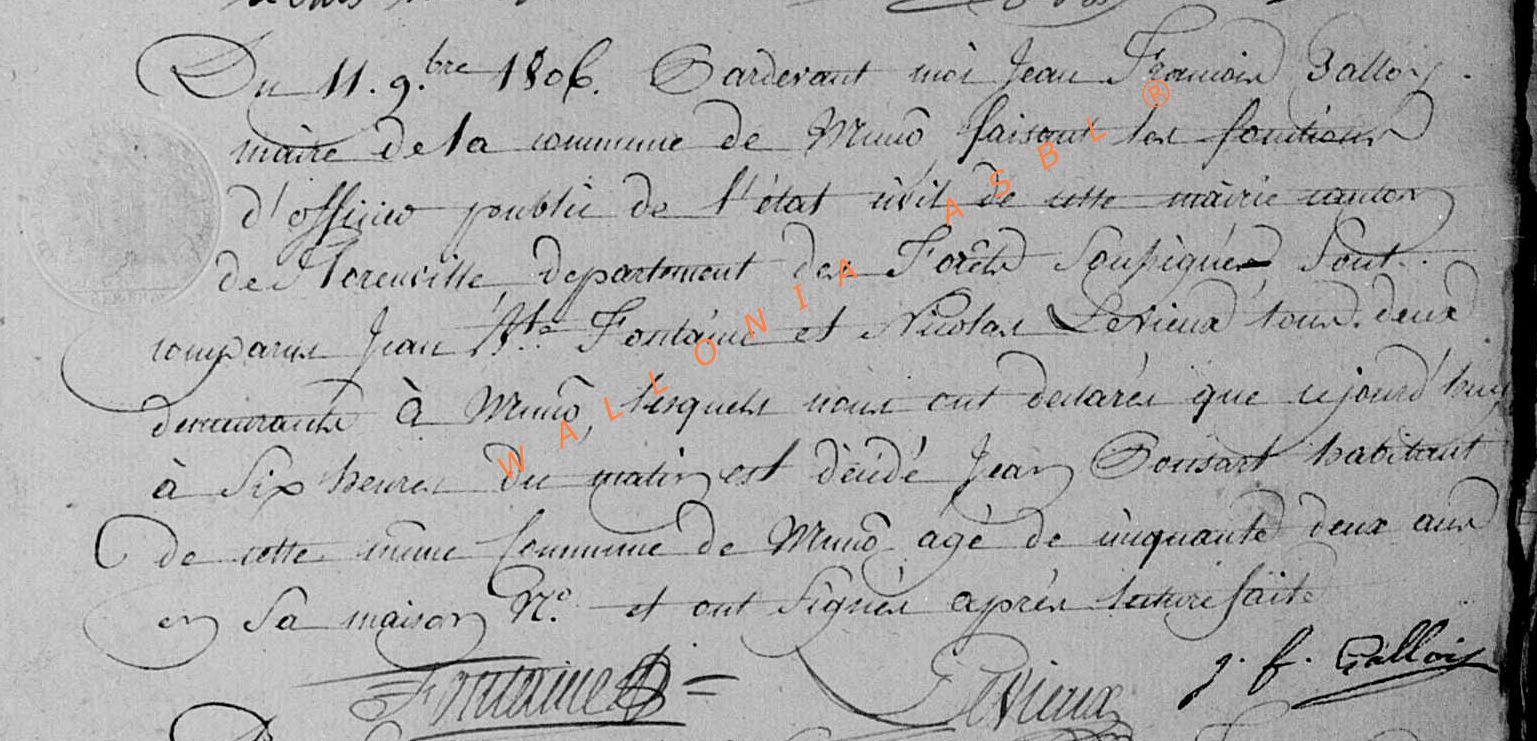 Du 11. 9.bre 1806. Pardevant moi Jean Francois Gallois.
maire de la commune de Muno faisant les fonctions
d'officier public de l'état civil de cette mairie canton
de Florenville, departement des Forêts Soussignés Sont
comparus Jean Bte Fontaine et Nicolas Levieux tous deux
demeurants à Muno, lesquels nous ont declarés que cejourd'huy
à Six heures du matin est décédé Jean Ponsart habitant
de cette même Commune de Muno agé de cinquante deux ans
en Sa maison No. et ont Signés après lecture faite
Fontaine Levieux j. f. Gallois
WALLONIA ASBL ®